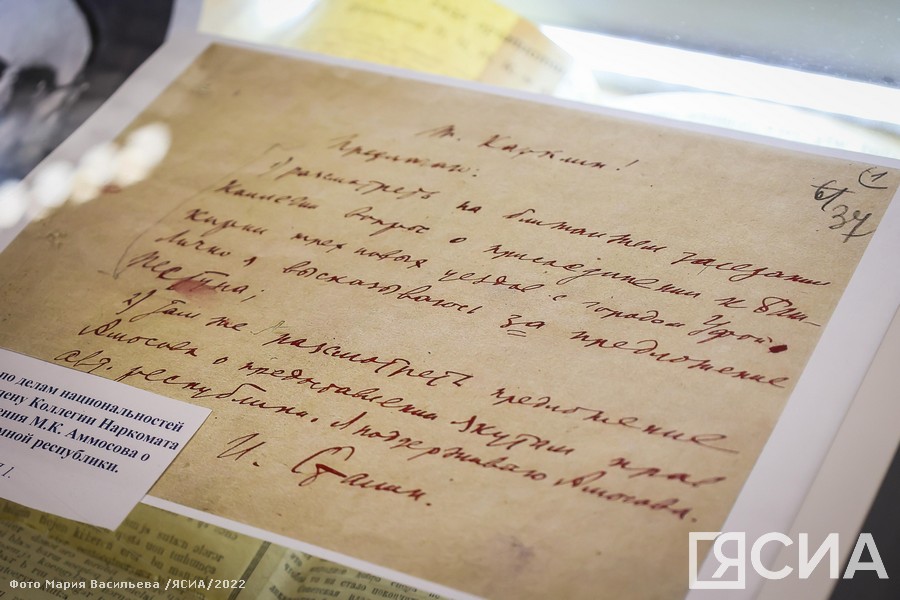 т. Каклин!
Предлагаю:
1) рассмотреть на ближайшем заседании
Коллегии вопрос о присоединении к Баш-
кирии трех новых уездов с городом Уфой.
Лично я высказываюсь за предложение
2) Там же рассмотреть предложение
Амосова о предоставлении Якутии прав
авт. республики. Я поддерживаю Амосова.
И. Сталин.
1
37
по делам национальностей
лену Коллегии Наркомата
ения М.К. Аммосова о
мной республики.
Фото Мария Васильева /ЯСИА/2022
ЯСИА